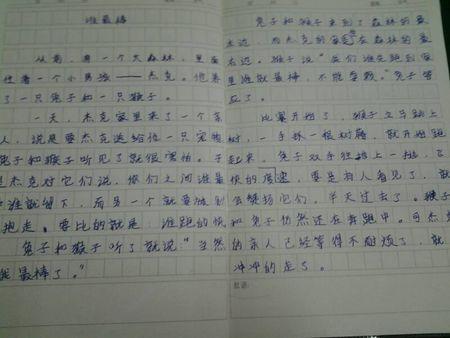 谁最棒
从前，有一个大森林，里面
住着一个小男孩——杰克。他养
了一只兔子和一只猴子。
一天，杰克家里来了一个客
人，说是要杰克送给他一只宠物
兔子和猴子听见了就很害怕。于
是杰克对它们说，你们之间谁最
谁就留下，而另一个就要被别
抱走。要比的就是，谁跑的快
兔子和猴子听了就说"当然
我最棒了。"
兔子和猴子来到了森林的最
左边，而杰克的家在森林的最
右边。猴子说"我们谁先跑到家
里谁就最棒，不能参数。"兔子答
应了。
比赛开始了，猴子立马跳上
树，一手抓一根树藤，就开始跑
起来，兔子双手往地上一撑，飞
快的度，要是有人看见了，就
它们，半天过去了。猴子
和兔子仍然还在奔跑中。可杰克
的客人已经等得不耐烦了，就
冲冲的走了。
批语：